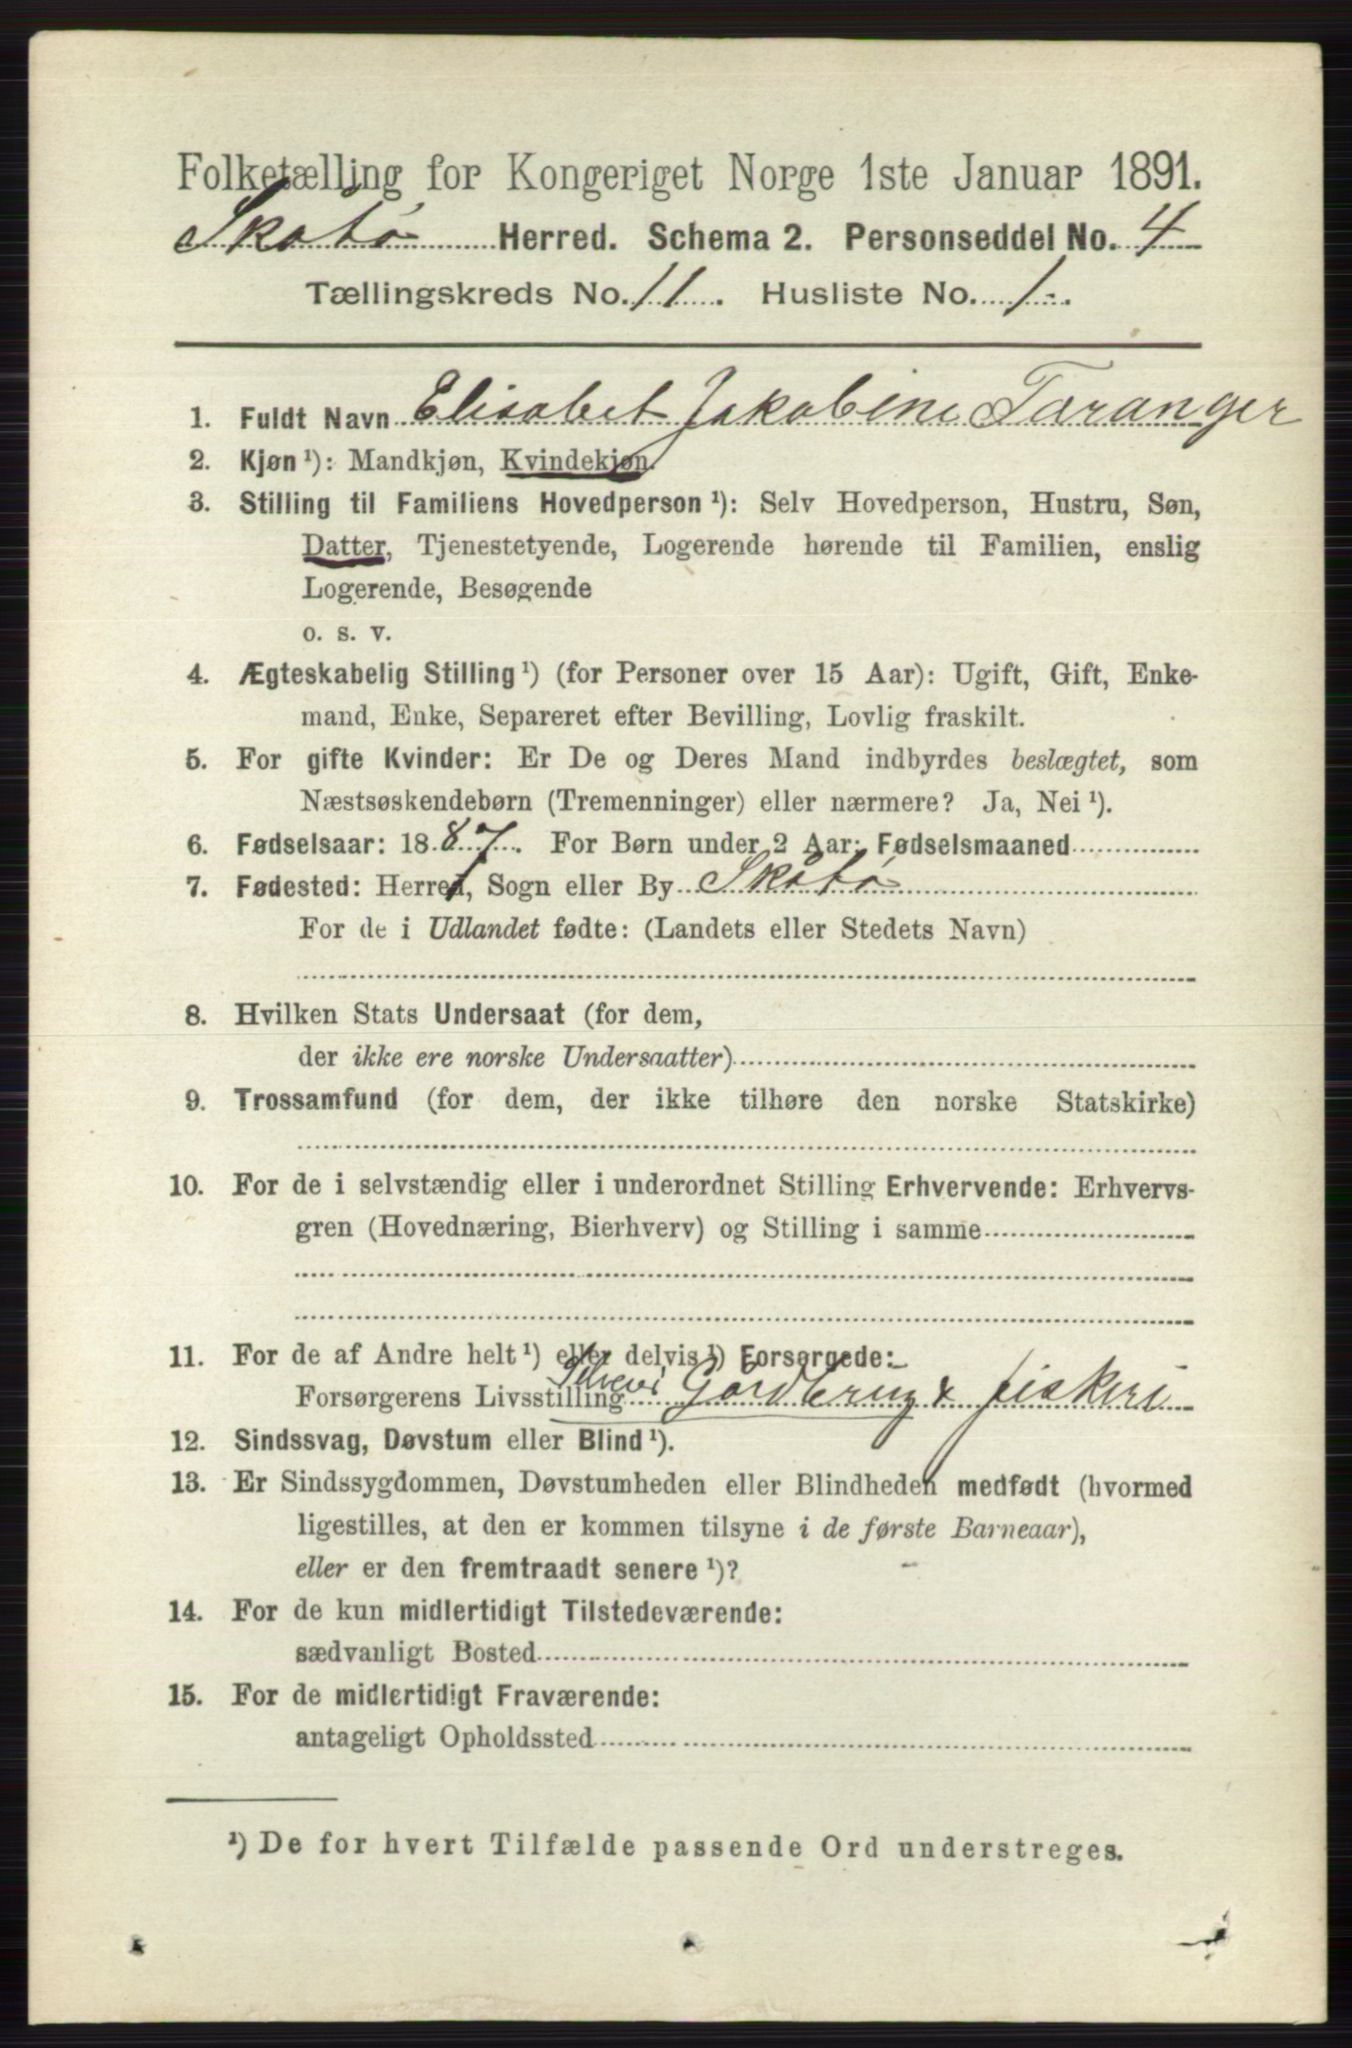 Folketælling for Kongeriget Norge 1ste Januar 1891.
Skatø Herred. Schema 2. Personseddel No. 4
Tællingskreds No. 11. Husliste No. 1.
1. Fuldt Navn Elisabet Jakobine Taranger
2. Kjøn ¹): Mandkjøn, Kvindekjøn.
3. Stilling til Familiens Hovedperson ¹): Selv Hovedperson, Hustru, Søn,
Datter, Tjenestetyende, Logerende hørende til Familien, enslig
Logerende, Besøgende
o. s. v.
4. Ægteskabelig Stilling ¹) (for Personer over 15 Aar): Ugift, Gift, Enke-
mand, Enke, Separeret efter Bevilling, Lovlig fraskilt.
5. For gifte Kvinder: Er De og Deres Mand indbyrdes beslægtet, som
Næstsøskendebørn (Tremenninger) eller nærmere? Ja, Nei ¹).
6. Fødselsaar: 1887. For Børn under 2 Aar: Fødselsmaaned
7. Fødested: Herred, Sogn eller By Skåtø
For de i Udlandet fødte: (Landets eller Stedets Navn)
8. Hvilken Stats Undersaat (for dem,
der ikke ere norske Undersaatter)
9. Trossamfund (for dem, der ikke tilhøre den norske Statskirke)
10. For de i selvstændig eller i underordnet Stilling Erhvervende: Erhvervs-
gren (Hovednæring, Bierhverv) og Stilling i samme
11. For de af Andre helt ¹) eller delvis ¹) Forsørgede:
Forsørgerens Livsstilling Selveier Gårdbrug & fiskeri
12. Sindssvag, Døvstum eller Blind ¹).
13. Er Sindssygdommen, Døvstumheden eller Blindheden medfødt (hvormed
ligestilles, at den er kommen tilsyne i de første Barneaar),
eller er den fremtraadt senere ¹)?
14. For de kun midlertidigt Tilstedeværende:
sædvanligt Bosted
15. For de midlertidigt Fraværende:
antageligt Opholdssted
¹) De for hvert Tilfælde passende Ord understreges.